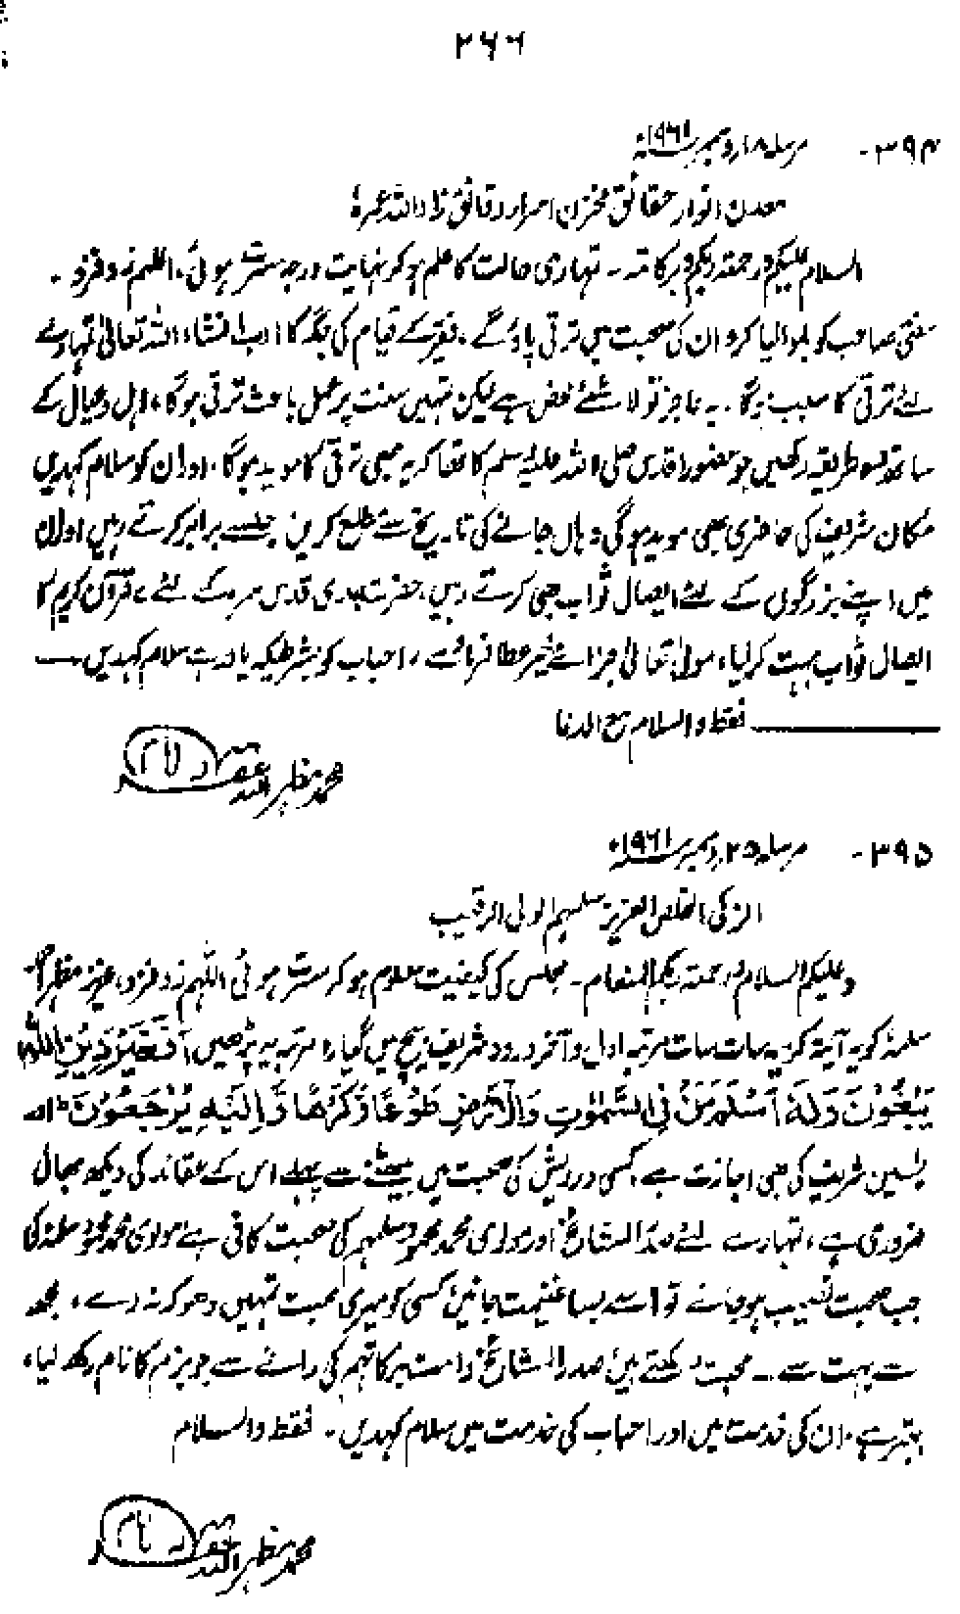 ۲۶۶
۳۹۴- مرسلہ ۱۸ دسمبر ۱۹۶۱ء
معدن انوار حقائق مخزن اسرار دقائق زاد اللہ عمرہٗ
السلام علیکم ورحمتہ ربکم وبرکاتہ۔ تمہاری حالت کا علم ہوکر نہایت درجہ مسرت ہوئی، اللھم زد فزد۔
مفتی صاحب کو بلوا لیا کرو ان کی صحبت میں ترقی پاؤ گے، فقیر کے قیام کی جگہ کا ادب انشاء اللہ تعالیٰ تمہارے
لئے ترقی کا سبب بنیگا۔ یہ عاجز تو لاشئے محض ہے لیکن تمہیں سنت پر عمل باعث ترقی ہوگا، اہل وعیال کے
ساتھ وہ طریقہ رکھیں جو حضور اقدس صلی اللہ علیہ وسلم کا تھا کہ یہ بھی ترقی کا موید ہوگا، اور ان کو سلام کہدیں
مکان شریف کی حاضری بھی موید ہوگی وہاں جانے کی تاریخ سے مطلع کریں جلسے برابر کرتے رہیں اور ان
میں اپنے بزرگوں کے لئے ایصال ثواب بھی کرتے رہیں، حضرت جدی قدس سرہ کے لئے ۷ قرآن کریم کا
ایصال ثواب بہت کرلیا، مولیٰ تعالیٰ جزائے خیر عطا فرمائے، احباب کو بشرطیکہ یاد رہے سلام کہدیں
فقط والسلام مع الدعا
محمد مظہر اللہ غفرلہ
۳۹۵- مرسلہ ۲۵ دسمبر ۱۹۶۱ء
الزکی المخلص العزیز سلمہم الولی الرقیب
وعلیکم السلام ورحمتہ ربکم المنعام۔ مجلس کی کیفیت معلوم ہوکر مسرت ہوئی اللھم زد فزد، عزیز مظہر
سلمہٗ کو یہ آیۃ کریمہ سات سات مرتبہ اول وآخر درود شریف بیچ میں گیارہ مرتبہ یہ پڑھیں اَفَغَیْرَ دِیْنِ اللّٰہِ
یَبْغُوْنَ وَلَہٗ اَسْلَمَ مَنْ فِی السَّمٰوٰتِ وَالْاَرْضِ طَوْعًا وَّکَرْھًا وَّاِلَیْہِ یُرْجَعُوْنَ اور
یٰسین شریف کی بھی اجازت ہے، کسی درویش کی صحبت میں بیٹھنے سے پہلے اس کے عقائد کی دیکھ بھال
ضروری ہے، تمہارے لئے صدر المشائخ اور مولوی محمد محمود سلمہم کی صحبت کافی ہے مولوی محمد محمود سلمہٗ کی
جب صحبت نصیب ہوجائے تو اسے بسا غنیمت جانیں کسی کو میری محبت تمہیں دھوکہ نہ دے، مجھ
سے بہت سے ۔ محبت رکھتے ہیں صدر المشائخ دامت برکاتہم کی رائے سے جو بزم کا نام رکھ لیا،
بہتر ہے، ان کی خدمت میں اور احباب کی خدمت میں سلام کہدیں۔ فقط والسلام
محمد مظہر اللہ غفرلہ